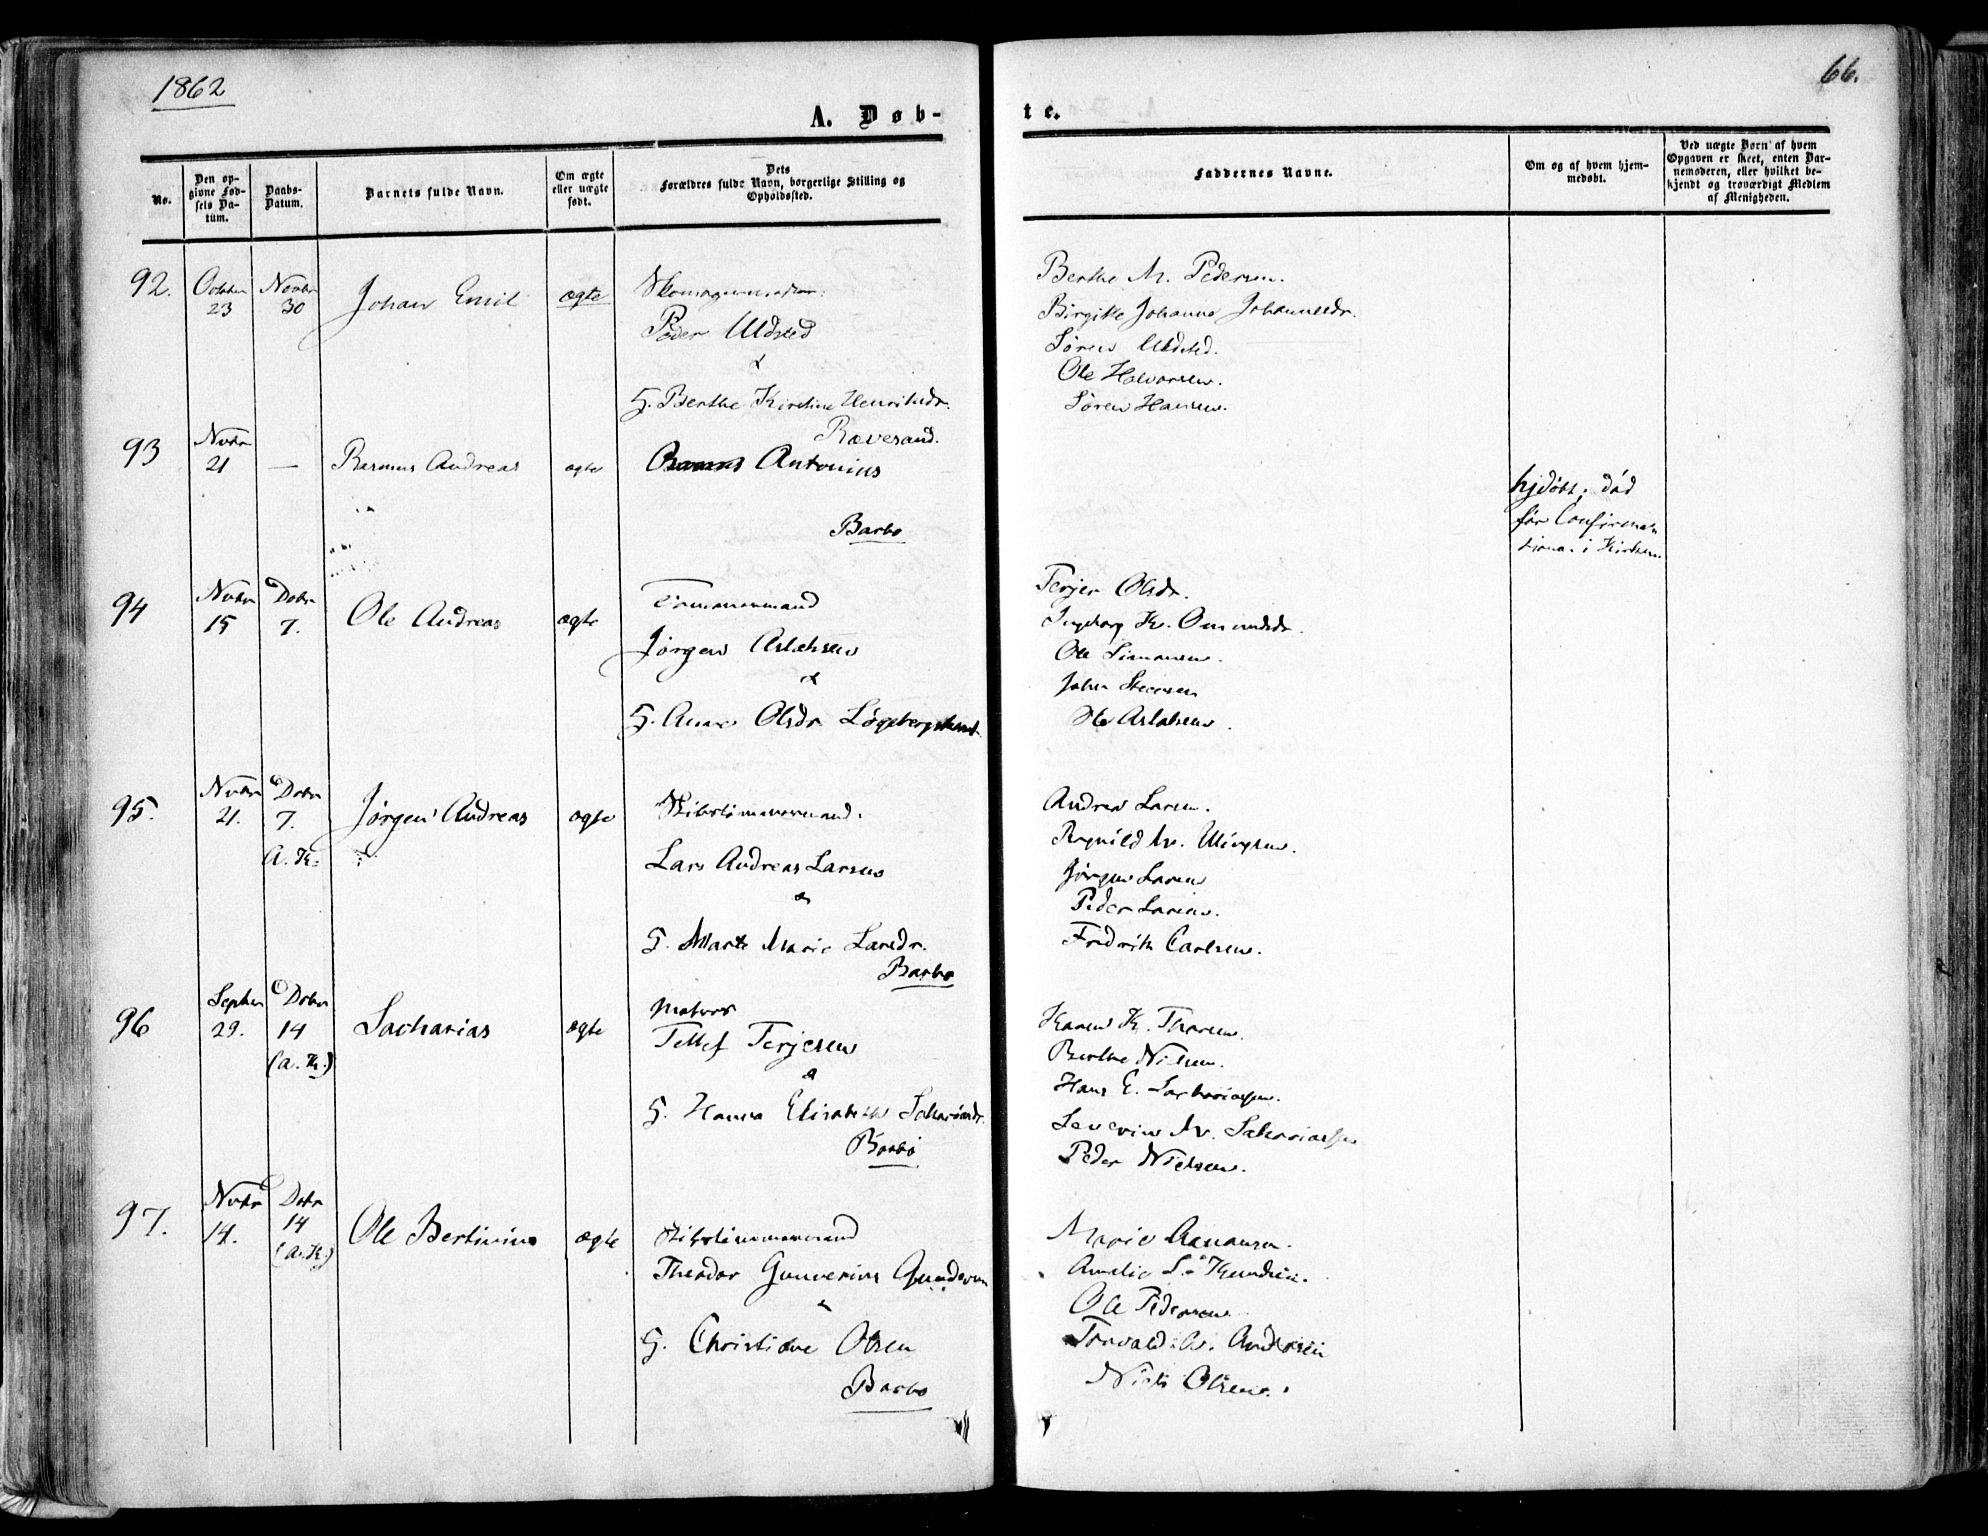 1862
66.
A. Døb-
te.
No.
Den op-
givne Fød-
sels Da-
tum.
Daabs-
Datum.
Barnets fulde Navn.
Om ægte
eller uægte
født.
Dets
Forældres fulde Navn, borgerlige Stilling og
Opholdssted.
Faddernes Navne.
Om og af hvem hjem-
medøbt.
Ved uægte Børn af hvem
Opgaven er skeet, enten Bar-
nemoderen, eller hvilket be-
kjendt og troværdigt Medlem
af Menigheden.
92.
Octbr
23
Novbr
30
Johan Emil
ægte
Skomagermester
Peder Uldsted
&
G. Berthe Kirstine Henriksdr.
Ræversand.
Berthe M. Pedersen.
Birgitte Johanne Johannesdr.
Søren Uldsted.
Ole Halvorsen.
Søren Hansen.
93
Nvbr
21
—
Rasmus Andreas
ægte
Antonius
Barbo
hjdøbt, død
før Confirma-
tionen i Kirken
94
Nvbr
15
Dcbr
7.
Ole Andreas
ægte
Tømmermand
Jørgen Aslaksen
&
G. Anne Olsdr
Terjer Olsdr.
Ingeborg K. Omundsdr.
Ole Simonsen.
John
Aslaksen.
95.
Nvbr
21.
Dcbr
7.
A. K.
Jørgen Andreas
ægte
Skibstømmermand.
Lars Andreas Larsen
&
G. Marte Marie Larsdr.
Barbo
Andrea Larsen.
Ragnild M.
Jørgen Larsen
Peder Larsen.
Fredrik Carlsen.
96
Septbr
29.
Dcbr
14
(A. K.)
Sacharias
ægte
Matros
Tellef Terjesen
&
G. Hanna Elisabeth Sachariasdr.
Barbo
Karen K. Thorsen.
Berthe Nilsen.
Hans E. Sachariassen.
Severin M. Sachariassen
Peder Nielsen.
97.
Nvbr
14.
Dcbr
14
(A. K.)
Ole Bertinius
ægte
Skibstømmermand
Theodor Gunerius Gundersen
&
G. Christiane Olsen
Barbo
Marie Aanansen.
Amalie S. Knudsen.
Ole Pedersen
Torvald A. Andersen
Niels Olsen.